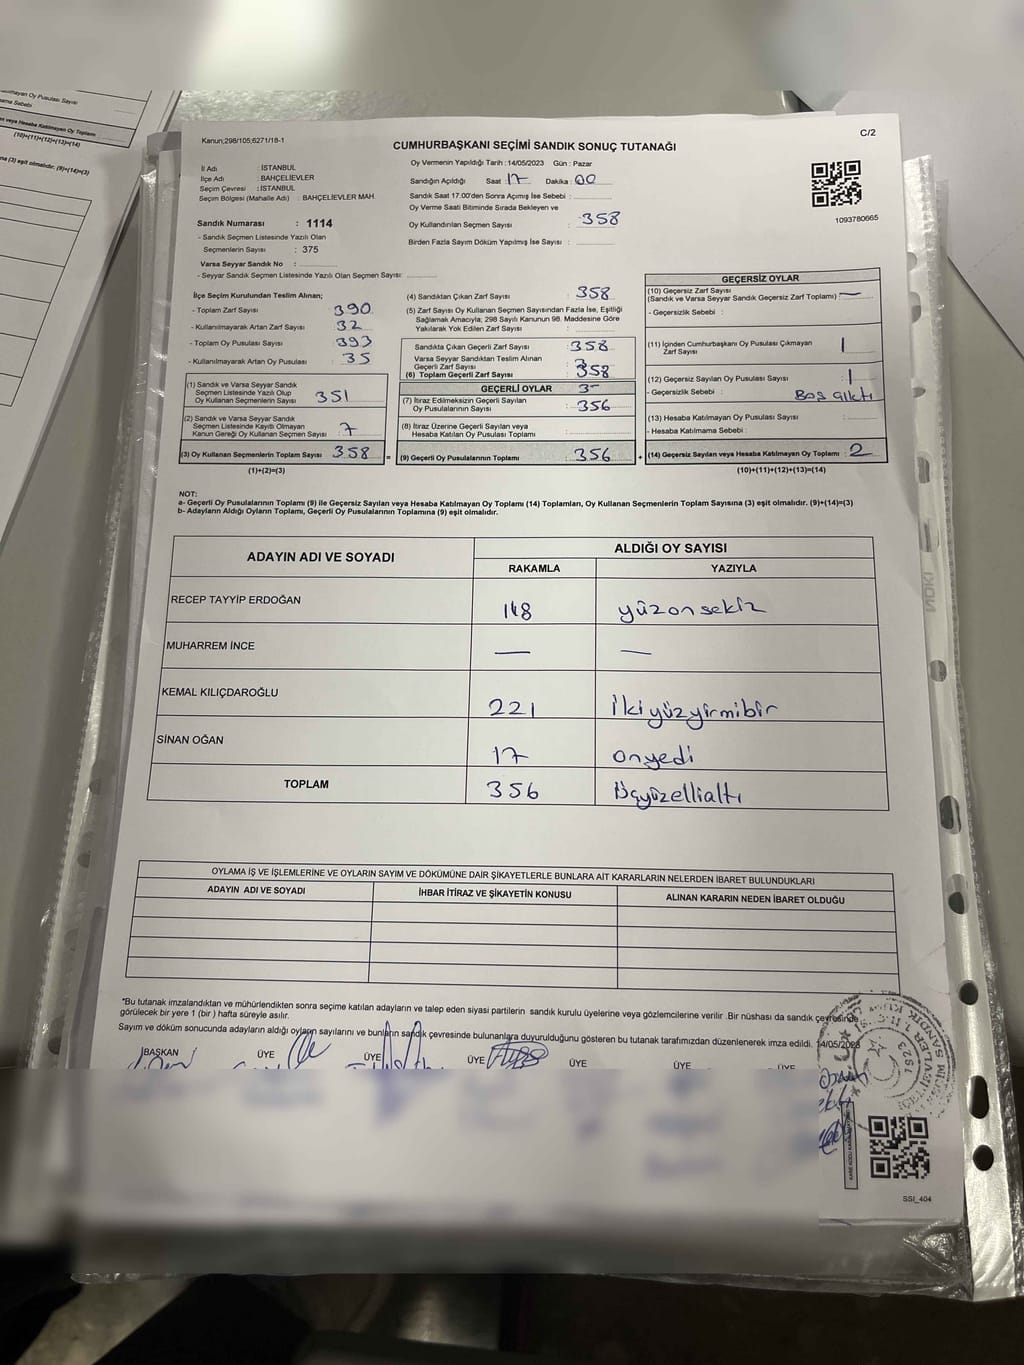 Kanun;298/105;6271/18-1
C/2
CUMHURBAŞKANI SEÇİMİ SANDIK SONUÇ TUTANAĞI
İl Adı : İSTANBUL
İlçe Adı : BAHÇELİEVLER
Seçim Çevresi : İSTANBUL
Seçim Bölgesi (Mahalle Adı) : BAHÇELİEVLER MAH.
Sandık Numarası : 1114
- Sandık Seçmen Listesinde Yazılı Olan
Seçmenlerin Sayısı : 375
Varsa Seyyar Sandık No :
- Seyyar Sandık Seçmen Listesinde Yazılı Olan Seçmen Sayısı:
Oy Vermenin Yapıldığı Tarih : 14/05/2023 Gün : Pazar
Sandığın Açıldığı Saat : 17 Dakika : 00
Sandık Saat 17.00'den Sonra Açımış İse Sebebi :
Oy Verme Saati Bitiminde Sırada Bekleyen ve
Oy Kullandırılan Seçmen Sayısı : 358
Birden Fazla Sayım Döküm Yapılmış İse Sayısı :
1093780665
İlçe Seçim Kurulundan Teslim Alınan;
- Toplam Zarf Sayısı : 390
- Kullanılmayarak Artan Zarf Sayısı : 32
- Toplam Oy Pusulası Sayısı : 393
- Kullanılmayarak Artan Oy Pusulası : 35
(1) Sandık ve Varsa Seyyar Sandık
Seçmen Listesinde Yazılı Olup
Oy Kullanan Seçmenlerin Sayısı : 351
(2) Sandık ve Varsa Seyyar Sandık
Seçmen Listesinde Kayıtlı Olmayan
Kanun Gereği Oy Kullanan Seçmen Sayısı : 7
(3) Oy Kullanan Seçmenlerin Toplam Sayısı : 358
(1)+(2)=(3)
(4) Sandıktan Çıkan Zarf Sayısı : 358
(5) Zarf Sayısı Oy Kullanan Seçmen Sayısından Fazla İse, Eşitliği
Sağlamak Amacıyla; 298 Sayılı Kanunun 98. Maddesine Göre
Yakılarak Yok Edilen Zarf Sayısı :
Sandıkta Çıkan Geçerli Zarf Sayısı : 358
Varsa Seyyar Sandıktan Teslim Alınan
Geçerli Zarf Sayısı
(6) Toplam Geçerli Zarf Sayısı : 358
GEÇERLİ OYLAR
(7) İtiraz Edilmeksizin Geçerli Sayılan
Oy Pusulalarının Sayısı : 356
(8) İtiraz Üzerine Geçerli Sayılan veya
Hesaba Katılan Oy Pusulası Toplamı :
(9) Geçerli Oy Pusulalarının Toplamı : 356
GEÇERSİZ OYLAR
(10) Geçersiz Zarf Sayısı
(Sandık ve Varsa Seyyar Sandık Geçersiz Zarf Toplamı) : —
- Geçersizlik Sebebi :
(11) İçinden Cumhurbaşkanı Oy Pusulası Çıkmayan
Zarf Sayısı : 1
(12) Geçersiz Sayılan Oy Pusulası Sayısı : 1
- Geçersizlik Sebebi : Boş çıktı
(13) Hesaba Katılmayan Oy Pusulası Sayısı :
- Hesaba Katılmama Sebebi :
(14) Geçersiz Sayılan veya Hesaba Katılmayan Oy Toplamı : 2
(10)+(11)+(12)+(13)=(14)
NOT:
a- Geçerli Oy Pusulalarının Toplamı (9) ile Geçersiz Sayılan veya Hesaba Katılmayan Oy Toplamı (14) Toplamları, Oy Kullanan Seçmenlerin Toplam Sayısına (3) eşit olmalıdır. (9)+(14)=(3)
b- Adayların Aldığı Oyların Toplamı, Geçerli Oy Pusulalarının Toplamına (9) eşit olmalıdır.
ADAYIN ADI VE SOYADI
ALDIĞI OY SAYISI
RAKAMLA YAZIYLA
RECEP TAYYİP ERDOĞAN 118 yüzonsekiz
MUHARREM İNCE — —
KEMAL KILIÇDAROĞLU 221 İkiyüzyirmibir
SİNAN OĞAN 17 onyedi
TOPLAM 356 Üçyüzellialtı
OYLAMA İŞ VE İŞLEMLERİNE VE OYLARIN SAYIM VE DÖKÜMÜNE DAİR ŞİKAYETLERLE BUNLARA AİT KARARLARIN NELERDEN İBARET BULUNDUKLARI
ADAYIN ADI VE SOYADI İHBAR İTİRAZ VE ŞİKAYETİN KONUSU ALINAN KARARIN NEDEN İBARET OLDUĞU
*Bu tutanak imzalandıktan ve mühürlendikten sonra seçime katılan adayların ve talep eden siyasi partilerin sandık kurulu üyelerine veya gözlemcilerine verilir .Bir nüshası da sandık çevresinde
görülecek bir yere 1 (bir ) hafta süreyle asılır.
Sayım ve döküm sonucunda adayların aldığı oyların sayılarını ve bunların sandık çevresinde bulunanlara duyurulduğunu gösteren bu tutanak tarafımızdan düzenlenerek imza edildi. 14/05/2023
BAŞKAN ÜYE ÜYE ÜYE ÜYE ÜYE ÜYE
SSI_404